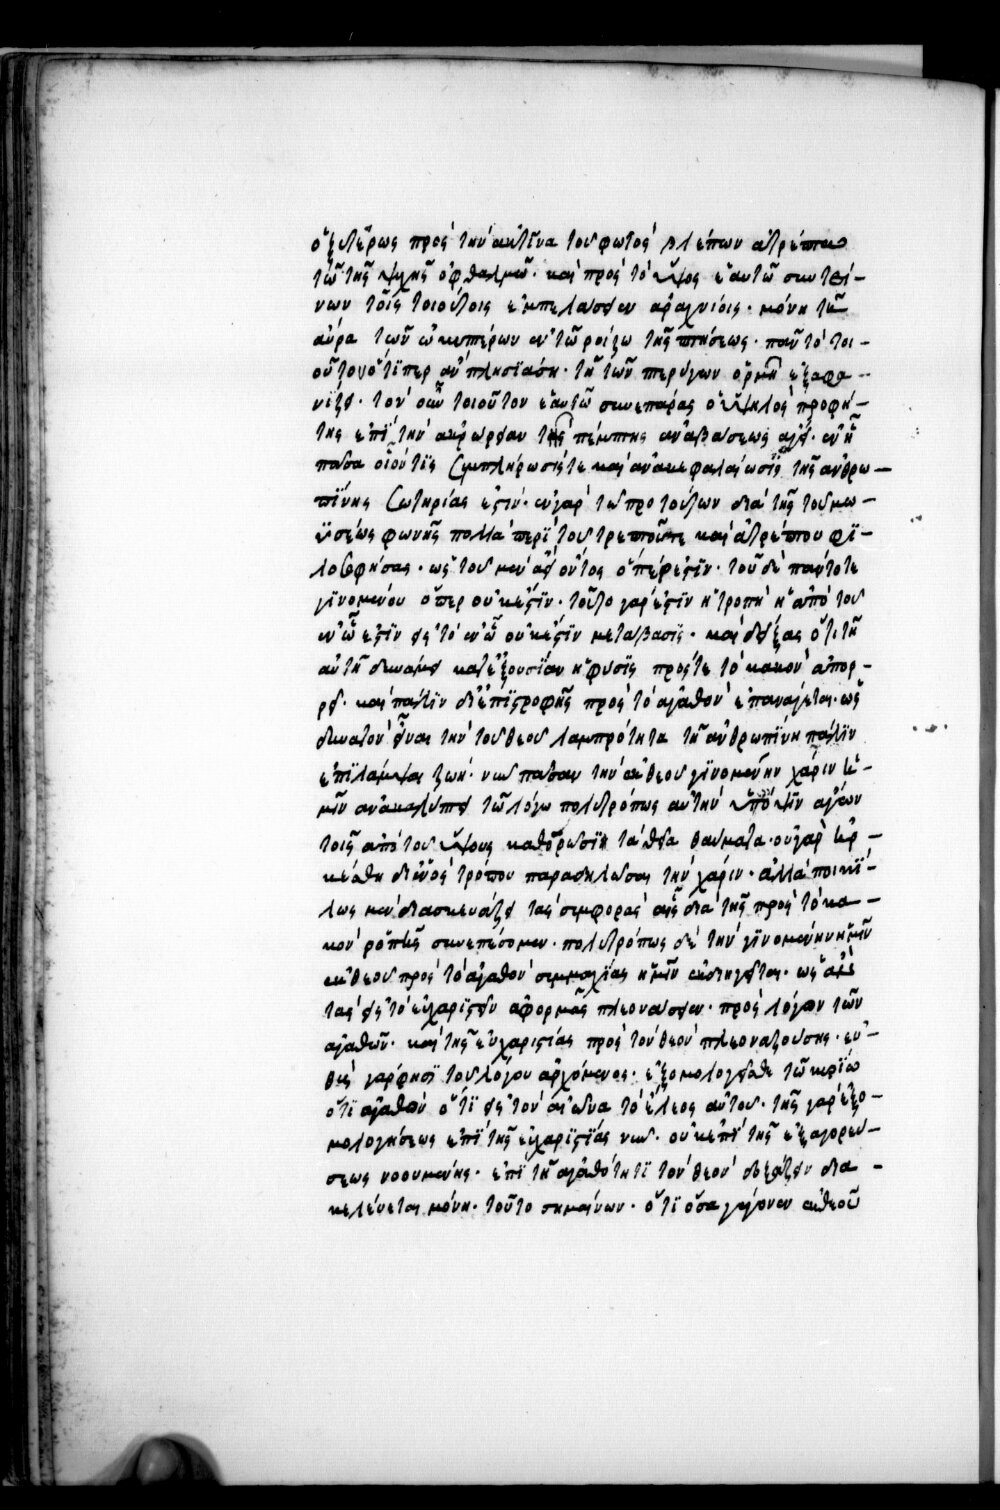 ὀξυτέρως πρὸς τὴν ἀκτῖνα τοῦ φωτὸς βλέπων ἀτρέπτω
τῶ τῆς ψυχῆς ὀφθαλμῶ· καὶ πρὸς τὸ ὕψος ἑαυτῶ συντεί-
νων τοῖς τοιούτοις ἐμπελάσειεν ἀραχνίοις· μόνη τῆ
αὔρα τῶν ὠκυπτέρων ἐν τῶ ροίζω τῆς πτήσεως· πᾶν τὸ τοι-
οῦτον ὅτιπερ ἂν πλησϊάση· τῆ τῶν πτερύγων ὁρμῆ ἐξαφα-
νίζει· τὸν οὖν τοιοῦτον ἑαυτῶ συνεπάρας ὁ ὑψηλὸς προφή-
της ἐπὶ τὴν ἀκρώρειαν τῆς πέμπτης ἀναβάσεως ἄγει· ἐν ἧ
πᾶσα οἷόν τις συμπλήρωσίς τε καὶ ἀνακεφαλαίωσϊς τῆς ἀνθρω-
πίνης σωτηρίας ἐστίν· ἐν γὰρ τῶ πρὸ τούτων διὰ τῆς τοῦ μω-
ϋσέως φωνῆς πολλὰ περὶ τοῦ τρεπτοῦ τε καὶ ἀτρέπτου φϊ-
λοσοφήσας· ὡς τοῦ μὲν ἀεὶ ὄντος ὅπερ ἐστϊν· τοῦ δὲ πάντοτε
γϊνομένου ὅπερ οὐκ ἔστϊν· τοῦτο γάρ ἐστϊν ἡ τροπὴ ἡ ἀπὸ τοῦ
ἐν ὧ ἐστϊν εἰς τὸ ἐν ὧ οὐκ ἔστϊν μετάβασϊς· καὶ δείξας ὅτι τῆ
αὐτῆ δυνάμει κατ' ἐξουσίαν ἡ φύσϊς πρός τε τὸ κακὸν ἀπορ-
ρεῖ· καὶ πάλϊν δι' ἐπϊστροφῆς πρὸς τὸ ἀγαθὸν ἐπανάγεται· ὡς
δυνατὸν εἶναι τὴν τοῦ θεοῦ λαμπρότητα τῆ ἀνθρωπϊνη πάλϊν
ἐπϊλάμψαι ζωῆ· νῦν πᾶσαν τὴν ἐκ θεοῦ γϊνομένην χάριν ἡ-
μῖν ἀνακαλύπτει τῶ λόγω πολυτρόπως αὐτὴν ὑπ' ὄψϊν ἄγων
τοῖς ἀπὸ τοῦ ὕψους καθορῶσϊ τὰ θεῖα θαύματα· οὐ γὰρ ἠρ-
κέσθη δι' ἑνὸς τρόπου παραδηλῶσαι τὴν χάριν· ἀλλὰ ποικϊ-
λως μὲν διασκευάζει τὰς συμφορὰς αἷς διὰ τῆς πρὸς τὸ κα-
κὸν ροπῆς συνεπέσομεν· πολυτρόπως δὲ τὴν γϊνομένην ἡμῖν
ἐκ θεοῦ πρὸς τὸ ἀγαθὸν συμμαχίας ἡμῖν ἐκδιηγεῖται· ὡς ἂν
τὰς εἰς τὸ εὐχαρϊστεῖν ἀφορμὰς πλεονάσειεν· πρὸς λόγον τῶν
ἀγαθῶν· καὶ τῆς εὐχαριστίας πρὸς τὸν θεὸν πλεοναζούσης· εὐ-
θὺς γὰρ φησϊ τοῦ λόγου ἀρχόμενος· ἐξομολογεῖσθε τῶ κυρίω
ὅτι ἀγαθόν ὅτϊ εἰς τὸν αἰῶνα τὸ ἔλεος αὐτοῦ· τῆς γὰρ ἐξο-
μολογήσεως ἐπϊ τῆς εὐχαρϊστϊας νῦν· οὐκ ἐπϊ τῆς ἐξαγορεύ-
σεως νοουμένης· ἐπϊ τῆ ἀγαθότητϊ τὸν θεὸν δοξάζειν δια-
κελεύεται μόνη· τοῦτο σημαίνων· ὅτϊ ὅσα γέγονεν ἐκ θεοῦ